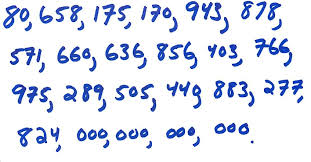 80,658,175,170,943,878,
571,660,636,856,403,766,
975,289,505,440,883,277,
824,000,000,000,000.